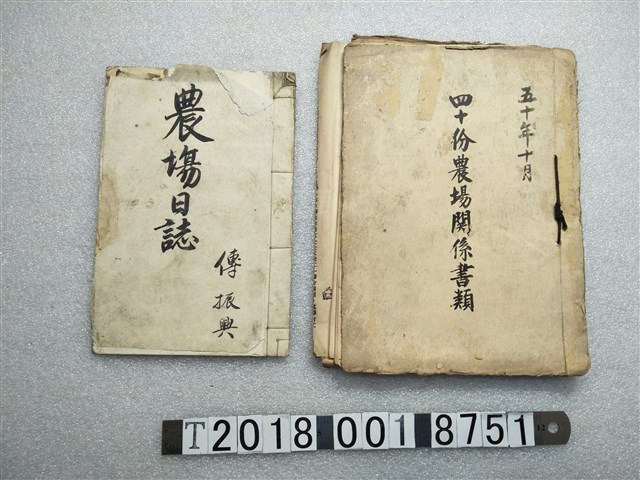 農塲日誌
傅振興
五十年十月
四十份農場関係書類
T2018 001 8751